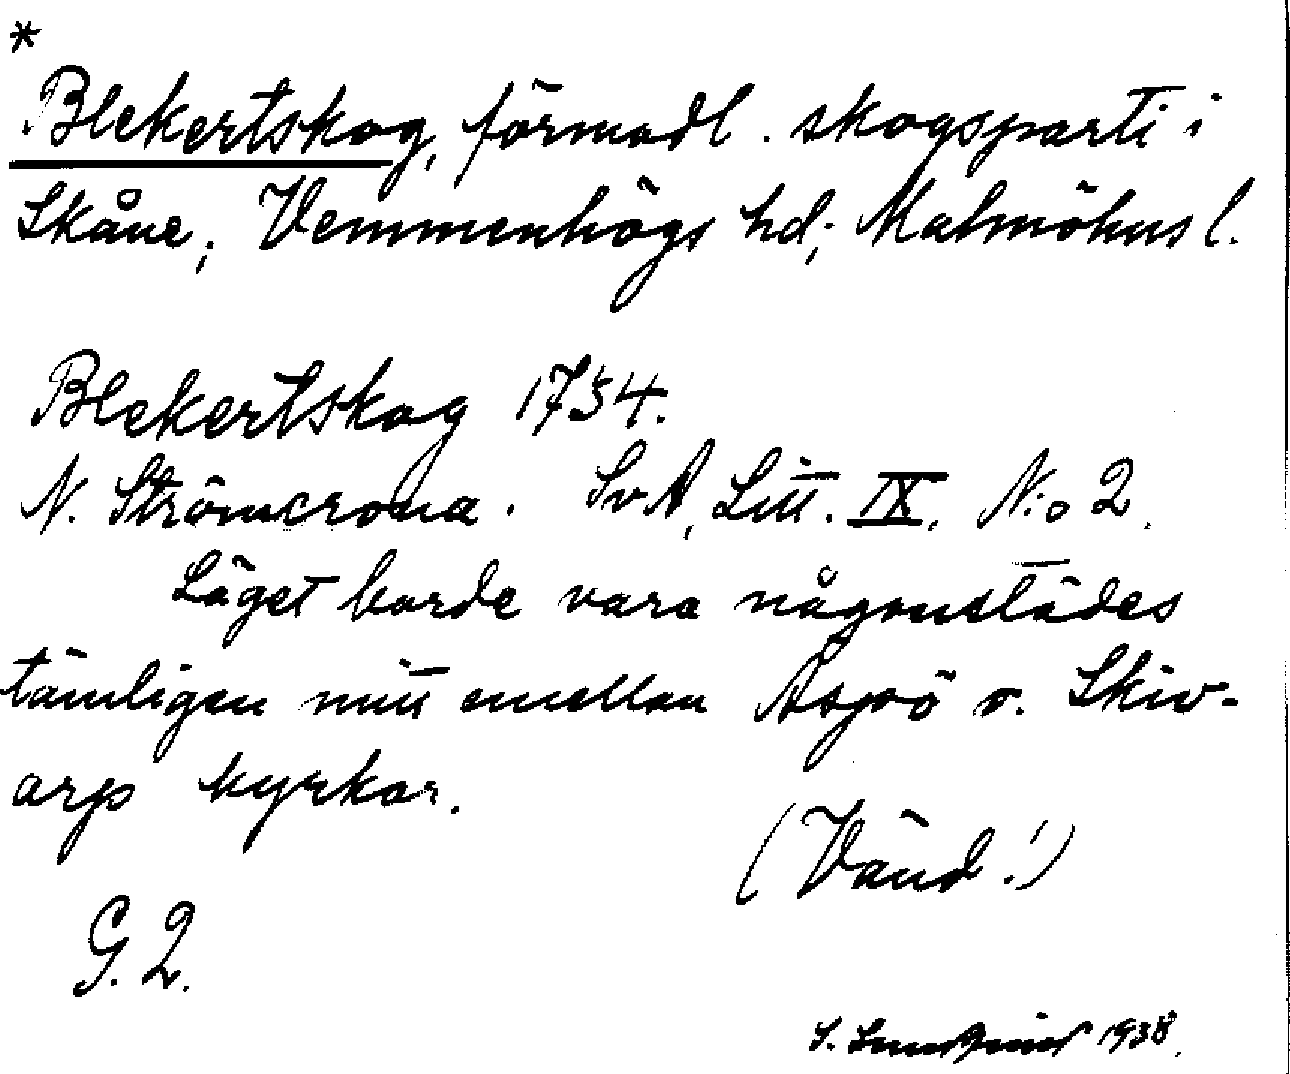 *
Blekertskog, förmodl. skogsparti i
Skåne, Vemmenhögs hd; Malmöhus l.
Blekertskog 1734.
N. Strömcrona. SvA, Litt. IX. N:o 2.
Läget borde vara någonstädes
tämligen mitt emellan Äspö o. Skiv-
arp kyrkor.
(Vänd!)
G. 2.
S. 1938.